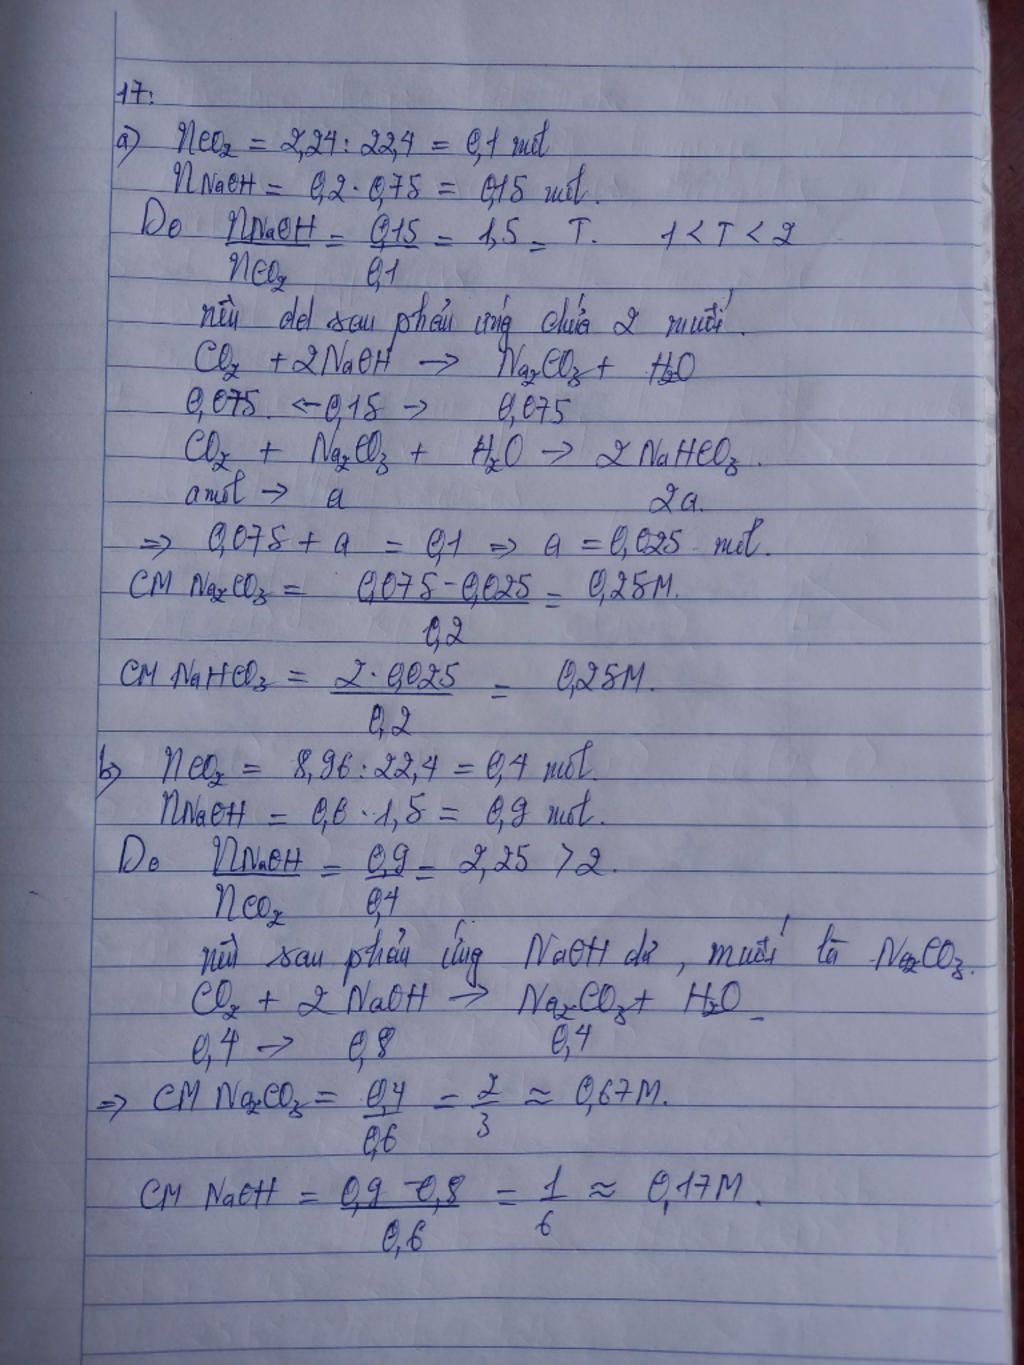 17:
a) nCO₂ = 2,24 : 22,4 = 0,1 mol
nNaOH = 0,2 . 0,75 = 0,15 mol.
Do nNaOH/nCO₂ = 0,15/0,1 = 1,5 = T. 1 < T < 2
nên dd sau phản ứng chứa 2 muối.
CO₂ + 2NaOH → Na₂CO₃ + H₂O
0,075 ← 0,15 → 0,075
CO₂ + Na₂CO₃ + H₂O → 2NaHCO₃.
a mol → a 2a.
⇒ 0,075 + a = 0,1 ⇒ a = 0,025 mol.
CM Na₂CO₃ = (0,075 - 0,025)/0,2 = 0,25M.
CM NaHCO₃ = (2 . 0,025)/0,2 = 0,25M.
b) nCO₂ = 8,96 : 22,4 = 0,4 mol.
nNaOH = 0,6 . 1,5 = 0,9 mol.
Do nNaOH/nCO₂ = 0,9/0,4 = 2,25 > 2.
nên sau phản ứng NaOH dư, muối là Na₂CO₃.
CO₂ + 2NaOH → Na₂CO₃ + H₂O
0,4 → 0,8 0,4
⇒ CM Na₂CO₃ = 0,4/0,6 = 2/3 ≈ 0,67M.
CM NaOH = (0,9 - 0,8)/0,6 = 1/6 ≈ 0,17M.